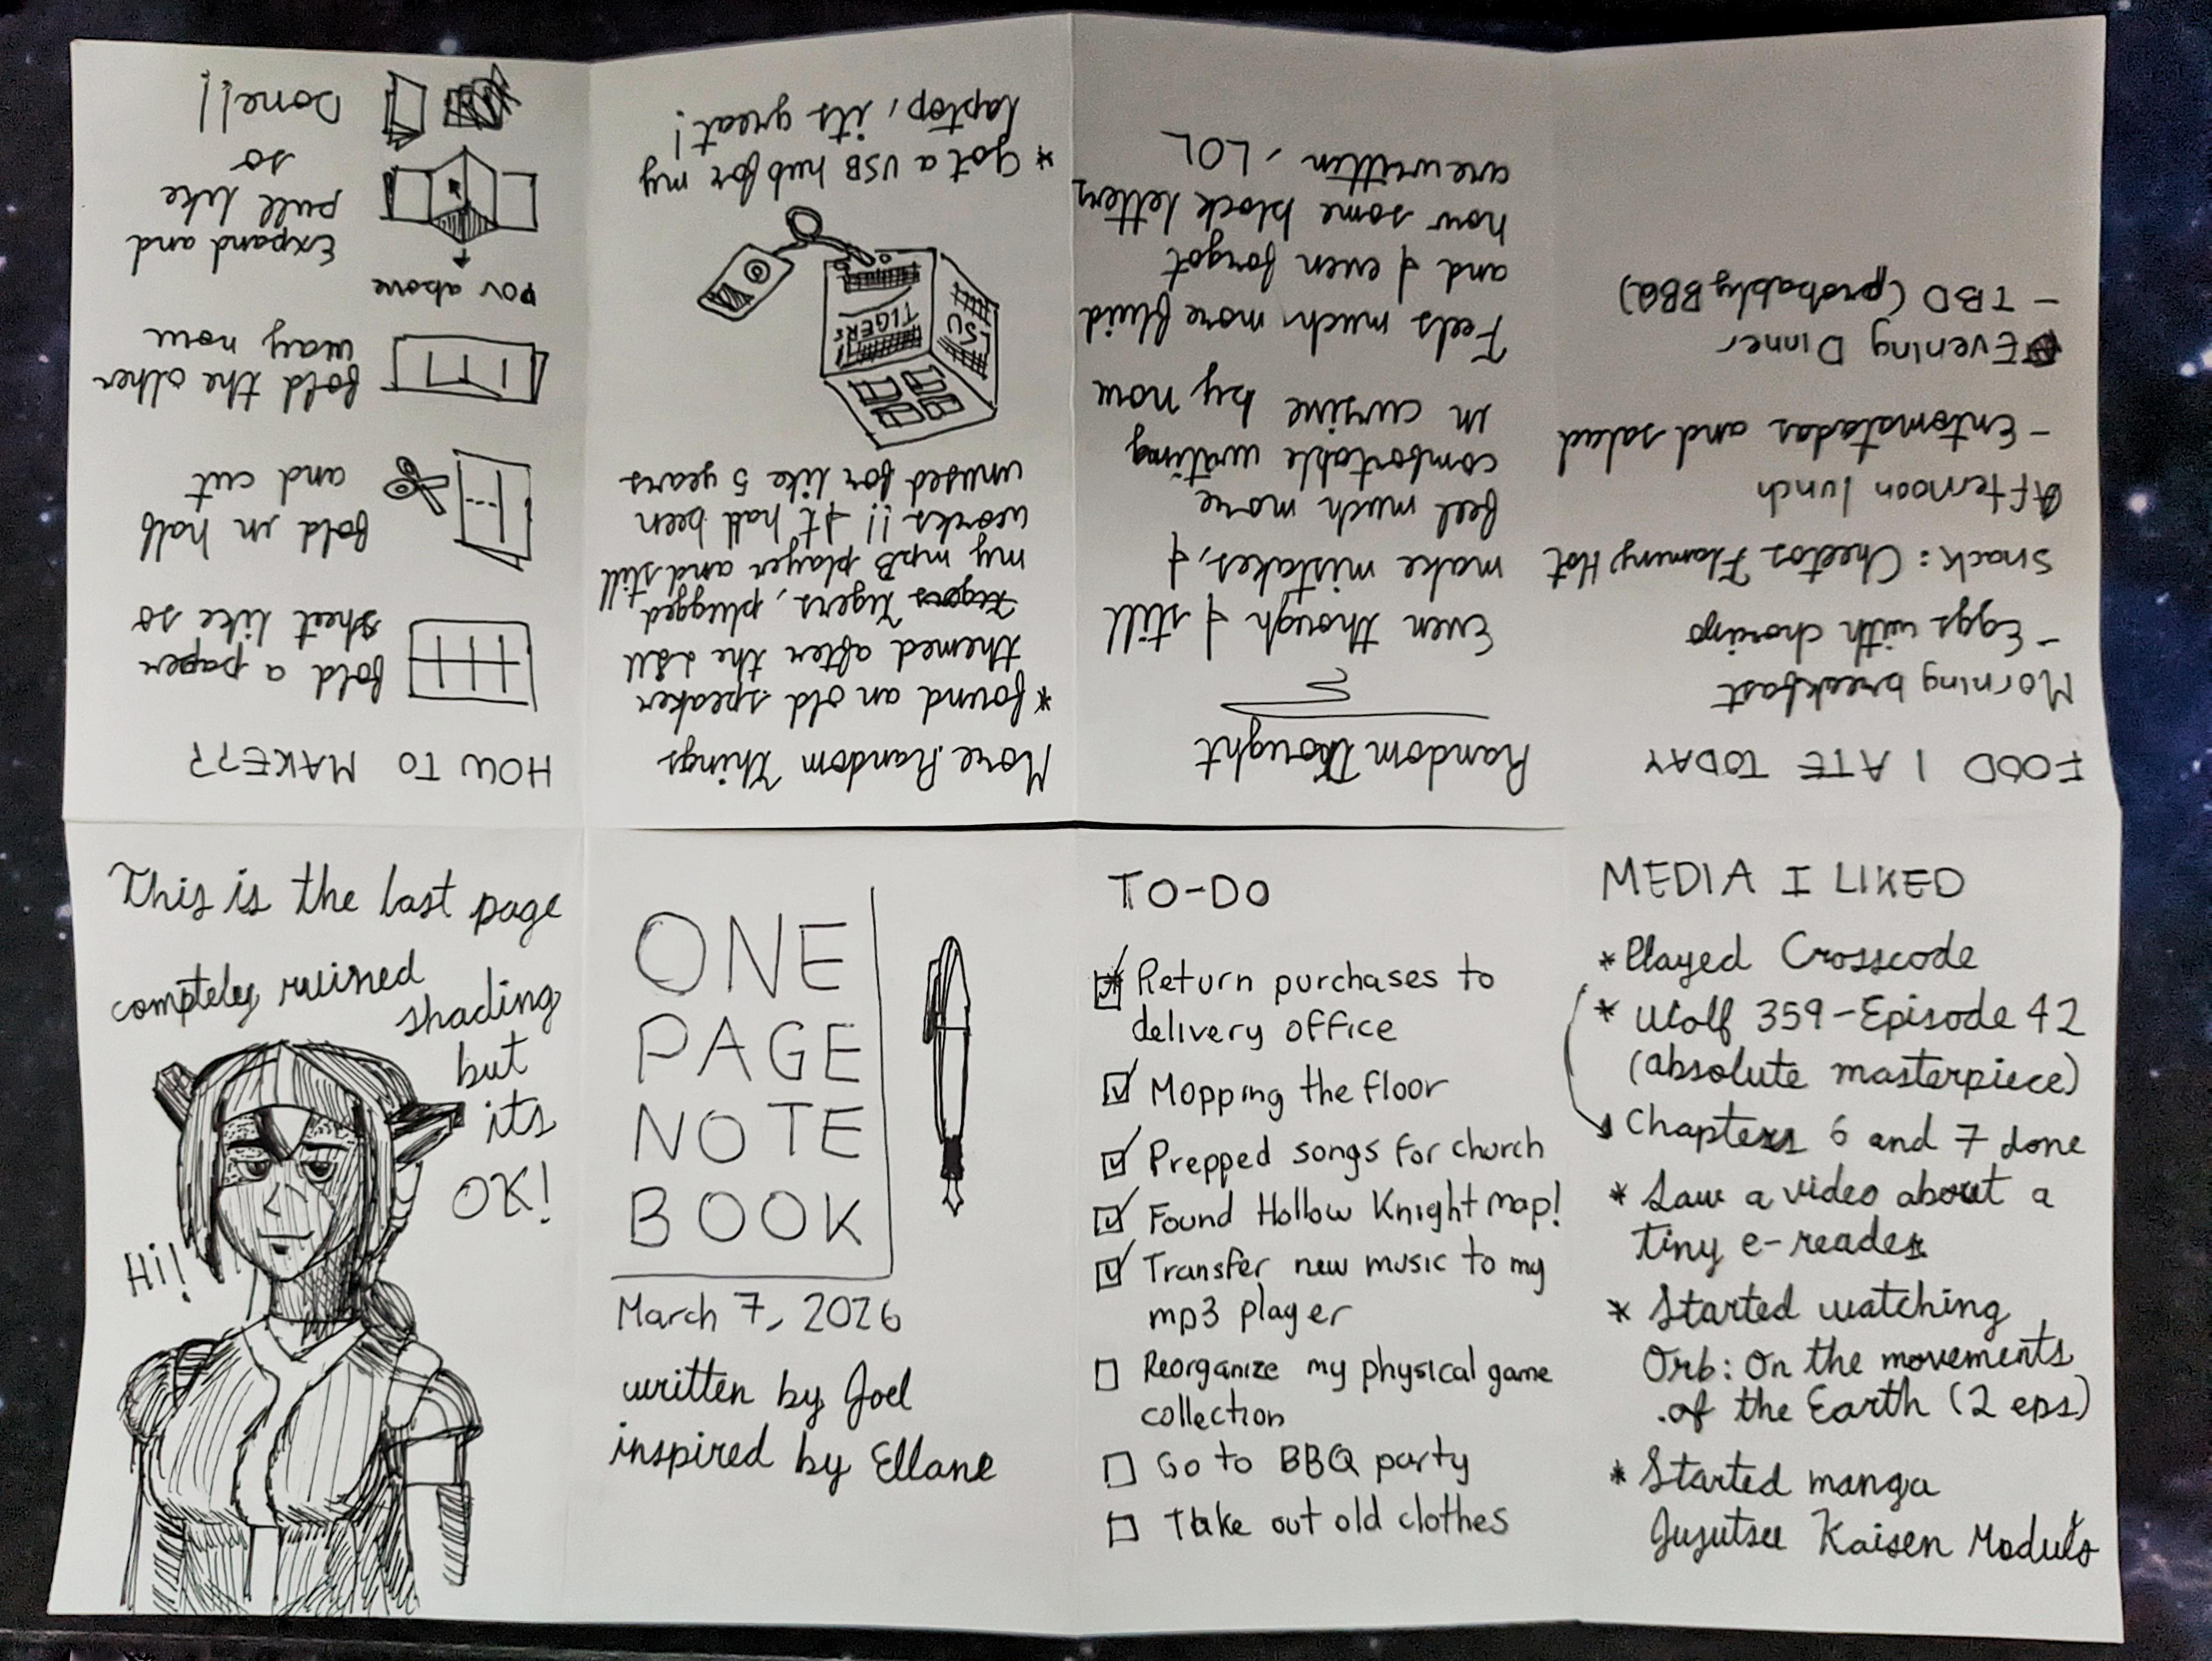 ONE
PAGE
NOTE
BOOK
March 7, 2026
written by Joel
inspired by Ellane
TO-DO
Return purchases to
delivery office
Mopping the floor
Prepped songs for church
Found Hollow Knight map!
Transfer new music to my
mp3 player
Reorganize my physical game
collection
Go to BBQ party
Take out old clothes
MEDIA I LIKED
* Played Crosscode
* Wolf 359 - Episode 42
(absolute masterpiece)
Chapters 6 and 7 done
* Saw a video about a
tiny e-reader
* Started watching
Orb: On the movements
of the Earth (2 eps)
* Started manga
Jujutsu Kaisen Modulo
FOOD I ATE TODAY
Morning breakfast
- Eggs with chorizo
Snack: Cheetos Flaming Hot
Afternoon lunch
- Entomatadas and salad
Evening Dinner
- TBD (probably BBQ)
Random Thought
Even though I still
make mistakes, I
feel much more
comfortable writing
in cursive by now
Feels much more fluid
and I even forgot
how some block letters
are written, LOL
More Random Things
* Found an old speaker
themed after the LSU
Tigers Tigers, plugged
my mp3 player and still
works!! It had been
unused for like 5 years
LSU
TIGERS
* Got a USB hub for my
laptop, its great!
HOW TO MAKE??
fold a paper
sheet like so
fold in half
and cut
fold the other
way now
POV above
Expand and
pull like
so
Done!!
This is the last page
compteley ruined
shading
but
its
OK!
Hi!